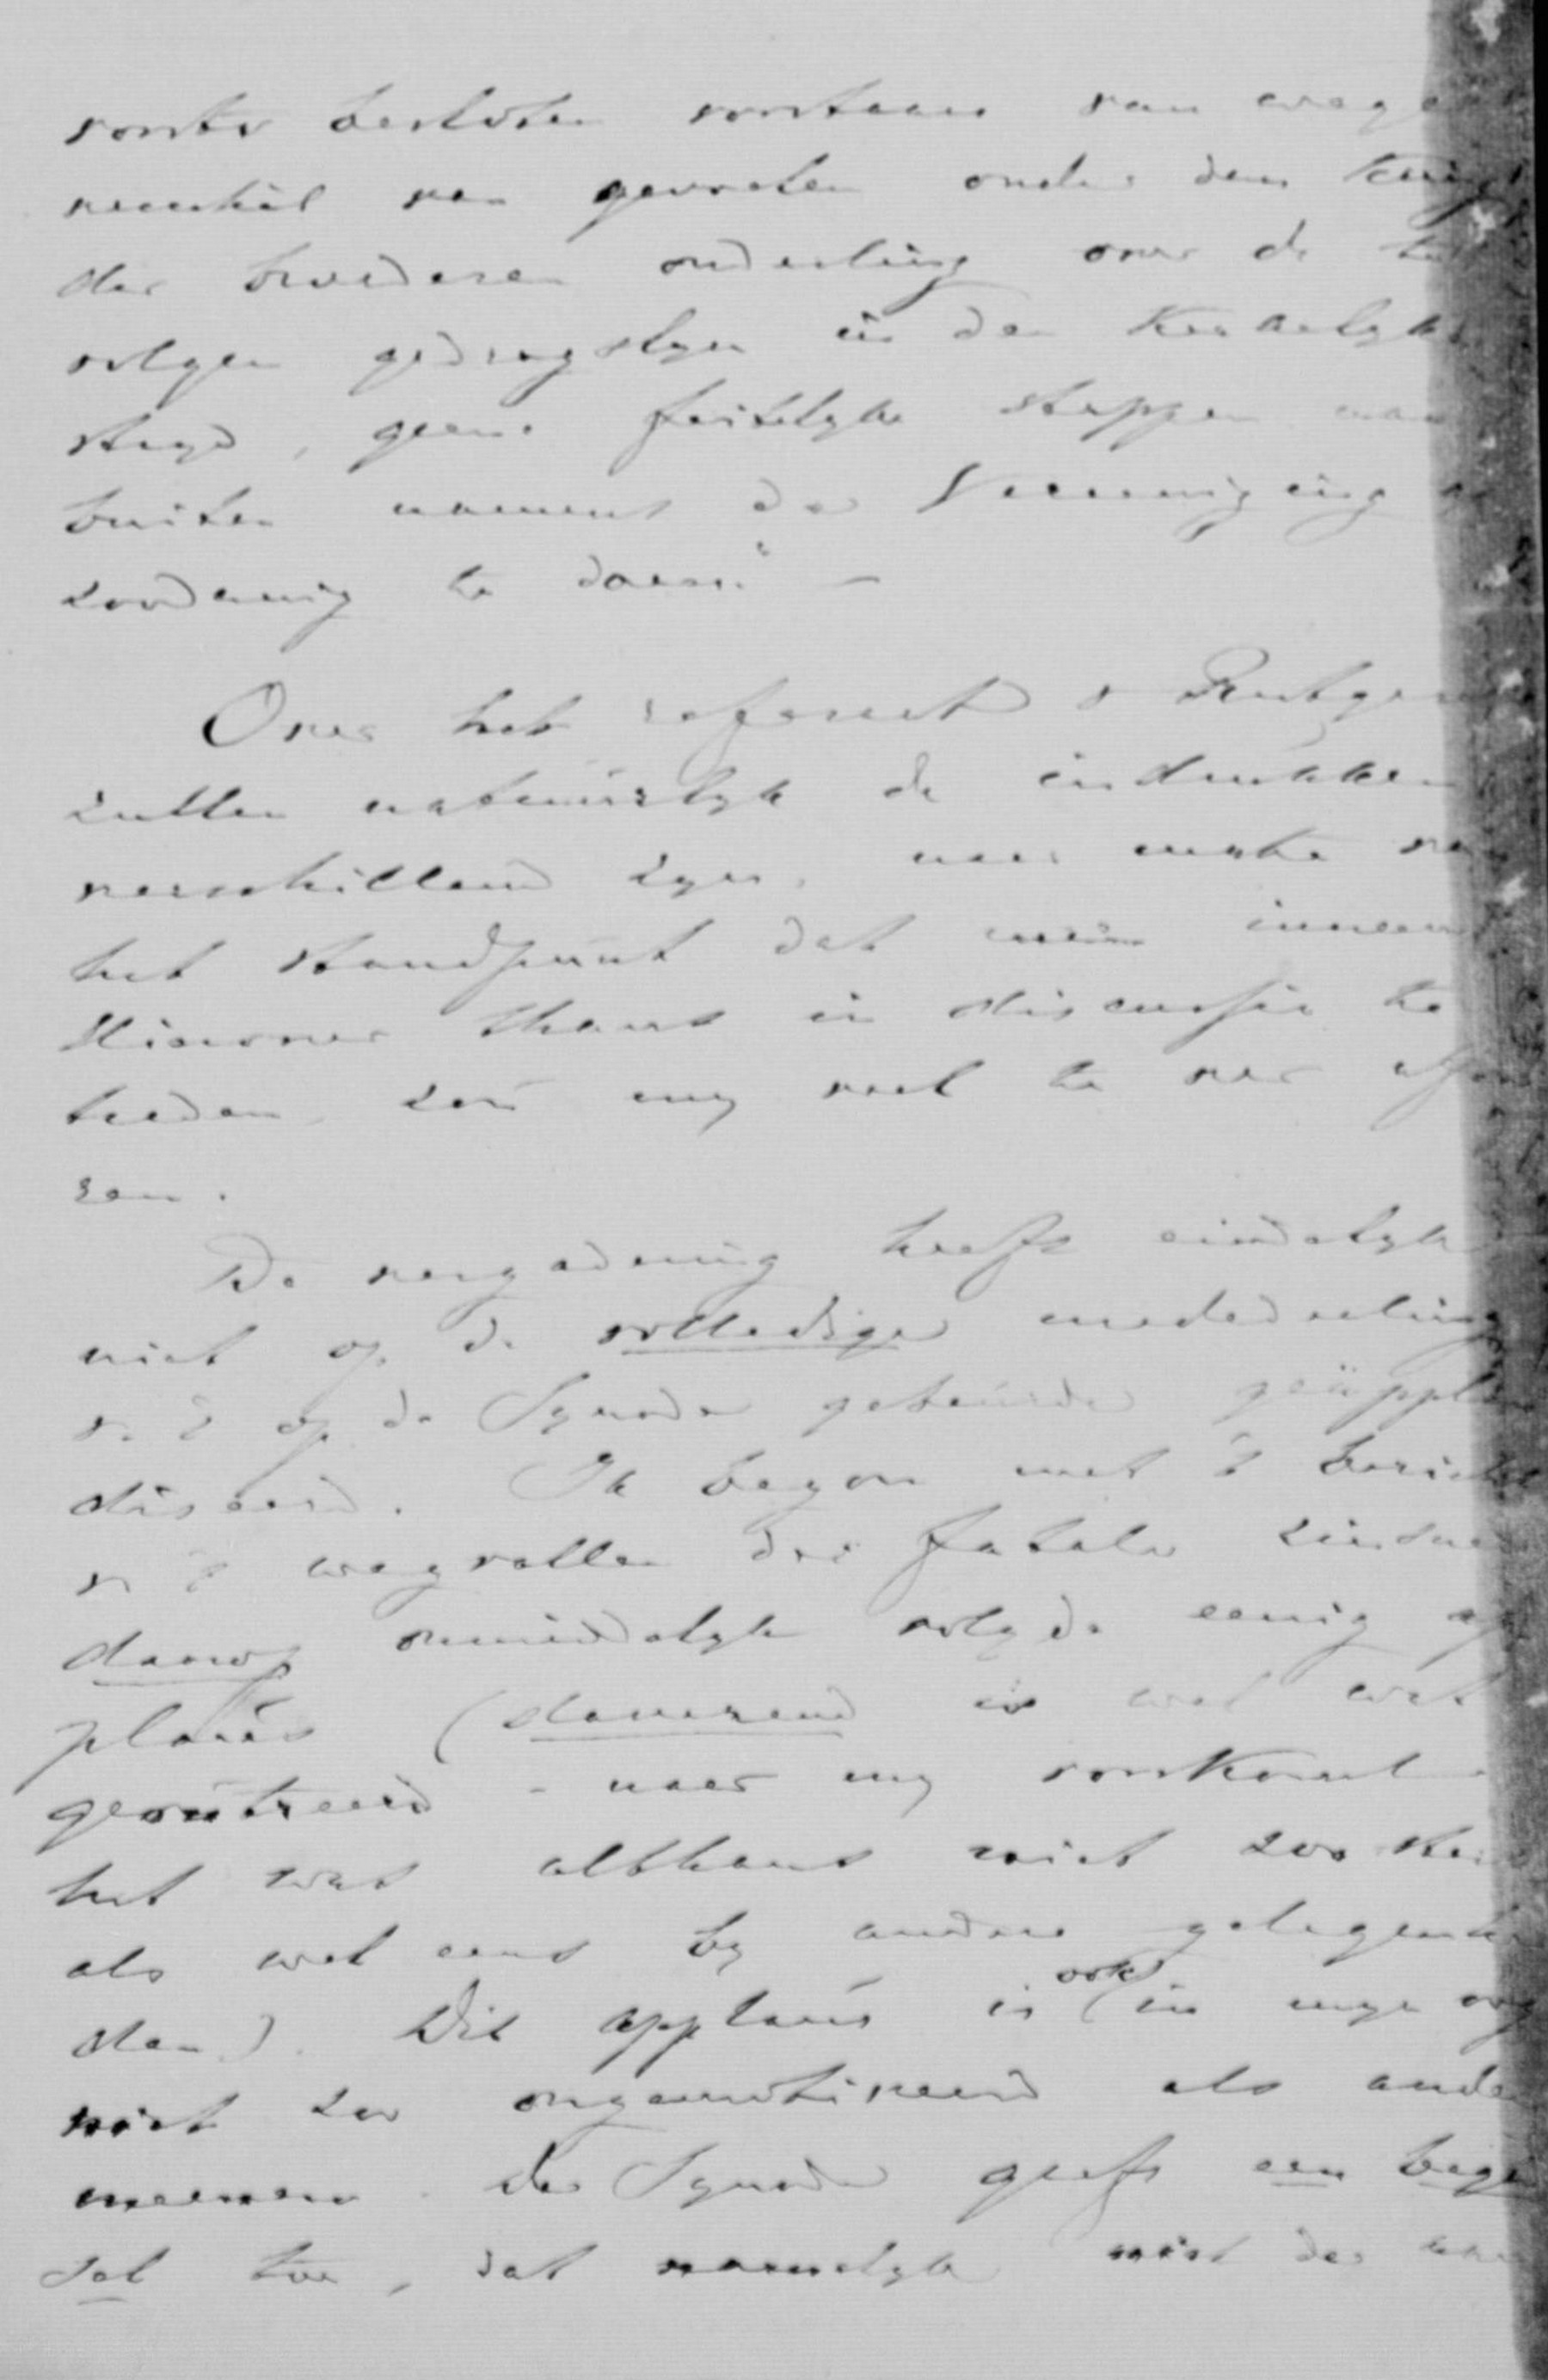 besloten voortaan van wege
verschil van gevoelen onder den
der broederen onderling over de te
volgen gedragslyn in den Kerkelyke
stryd, geene feitelyke stappen naar
buiten namens de Vereeniging als
zoodanig te doen." —
Over het referaat v Rutgers
zullen natuurlyk de indrukken
verschillend zyn, naar mate van
het standpunt dat men inneemt
Hierover thans in discussie te
treden, zou my veel te ver
ren.
De vergadering heeft eindelyk
niet op de volledige mededeeling
v. 't op de Synode gebeurde geäpplau
diseerd. Ik begon met 't bericht
v 't wegvallen der fatale zinsnede
daarop onmiddelyk volgde eenig ap
plaus (daverend is wel wat
geoutreerd - naar my voorkomt
het was althans niet zoo sterk
als wel eens by andere gelegenhe
den). Dit applaus is ook in myn oog
niet zoo ongemotiveerd als anderen
meenen. De Synode geeft een begin
sel toe, dat namelyk niet de